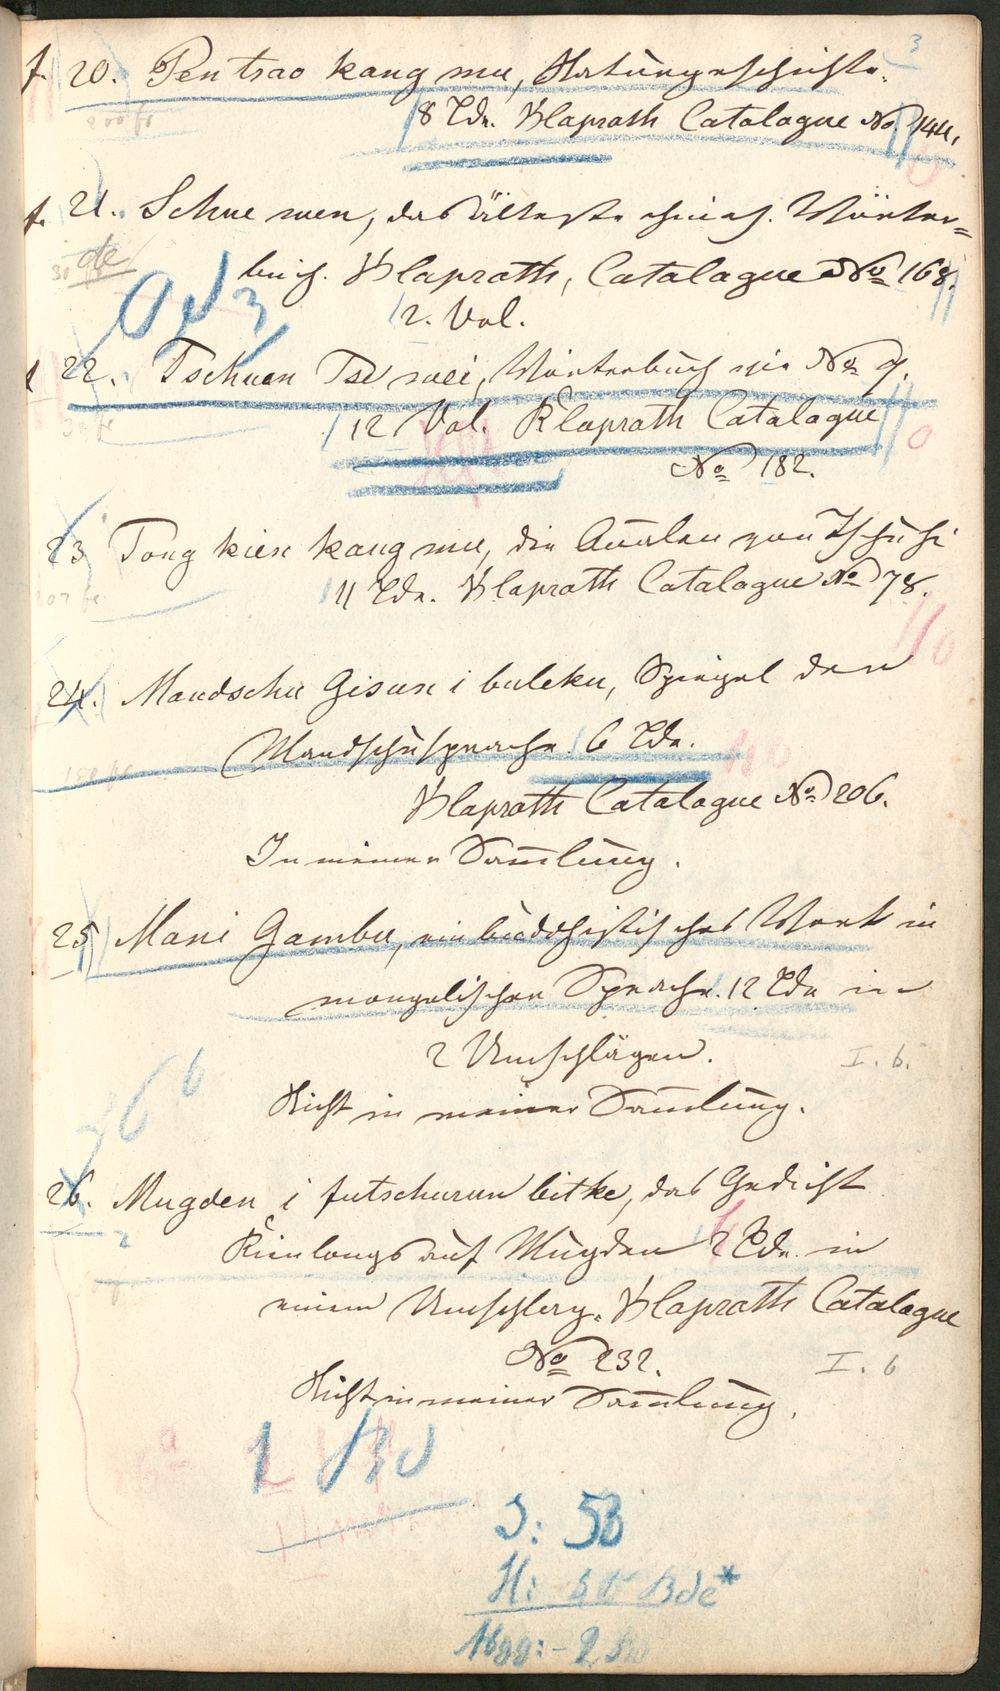 3
f. 20. Pen tsao kang mu, Naturgeschichte.
8 Bde. Klaproth Catalogue No 144.
f. 21. Schue wen, das älteste chines. Wörter=
buch. Klaproth, Catalogue No 168.
2. Vol.
22. Tschuen Tse wei, Wörterbuch wie No 9.
12 Vol. Klaproth Catalogue
No 182.
23 Tong kien kang mu, die Annalen von Tschuhi
11 Bde. Klaproth Catalogue No 78.
24. Mandschu Gisun i buleku, Spiegel der
Mandschusprache. 6 Bde.
Klaproth Catalogue No 206.
In meiner Sammlung.
25 Mani Gambu, ein buddhistisches Werk in
mongolischer Sprache. 12 Bde in
2 Umschlägen.
I. 6.
Nicht in meiner Sammlung.
26. Mugden i futschurun bitke, das Gedicht
Kienlongs auf Mugden 2 Bde. in
einem Umschlag. Klaproth Catalogue
No 232.
I. 6
Nicht in meiner Sammlung.
1 Bd
S: 53
H: 55 Bde*